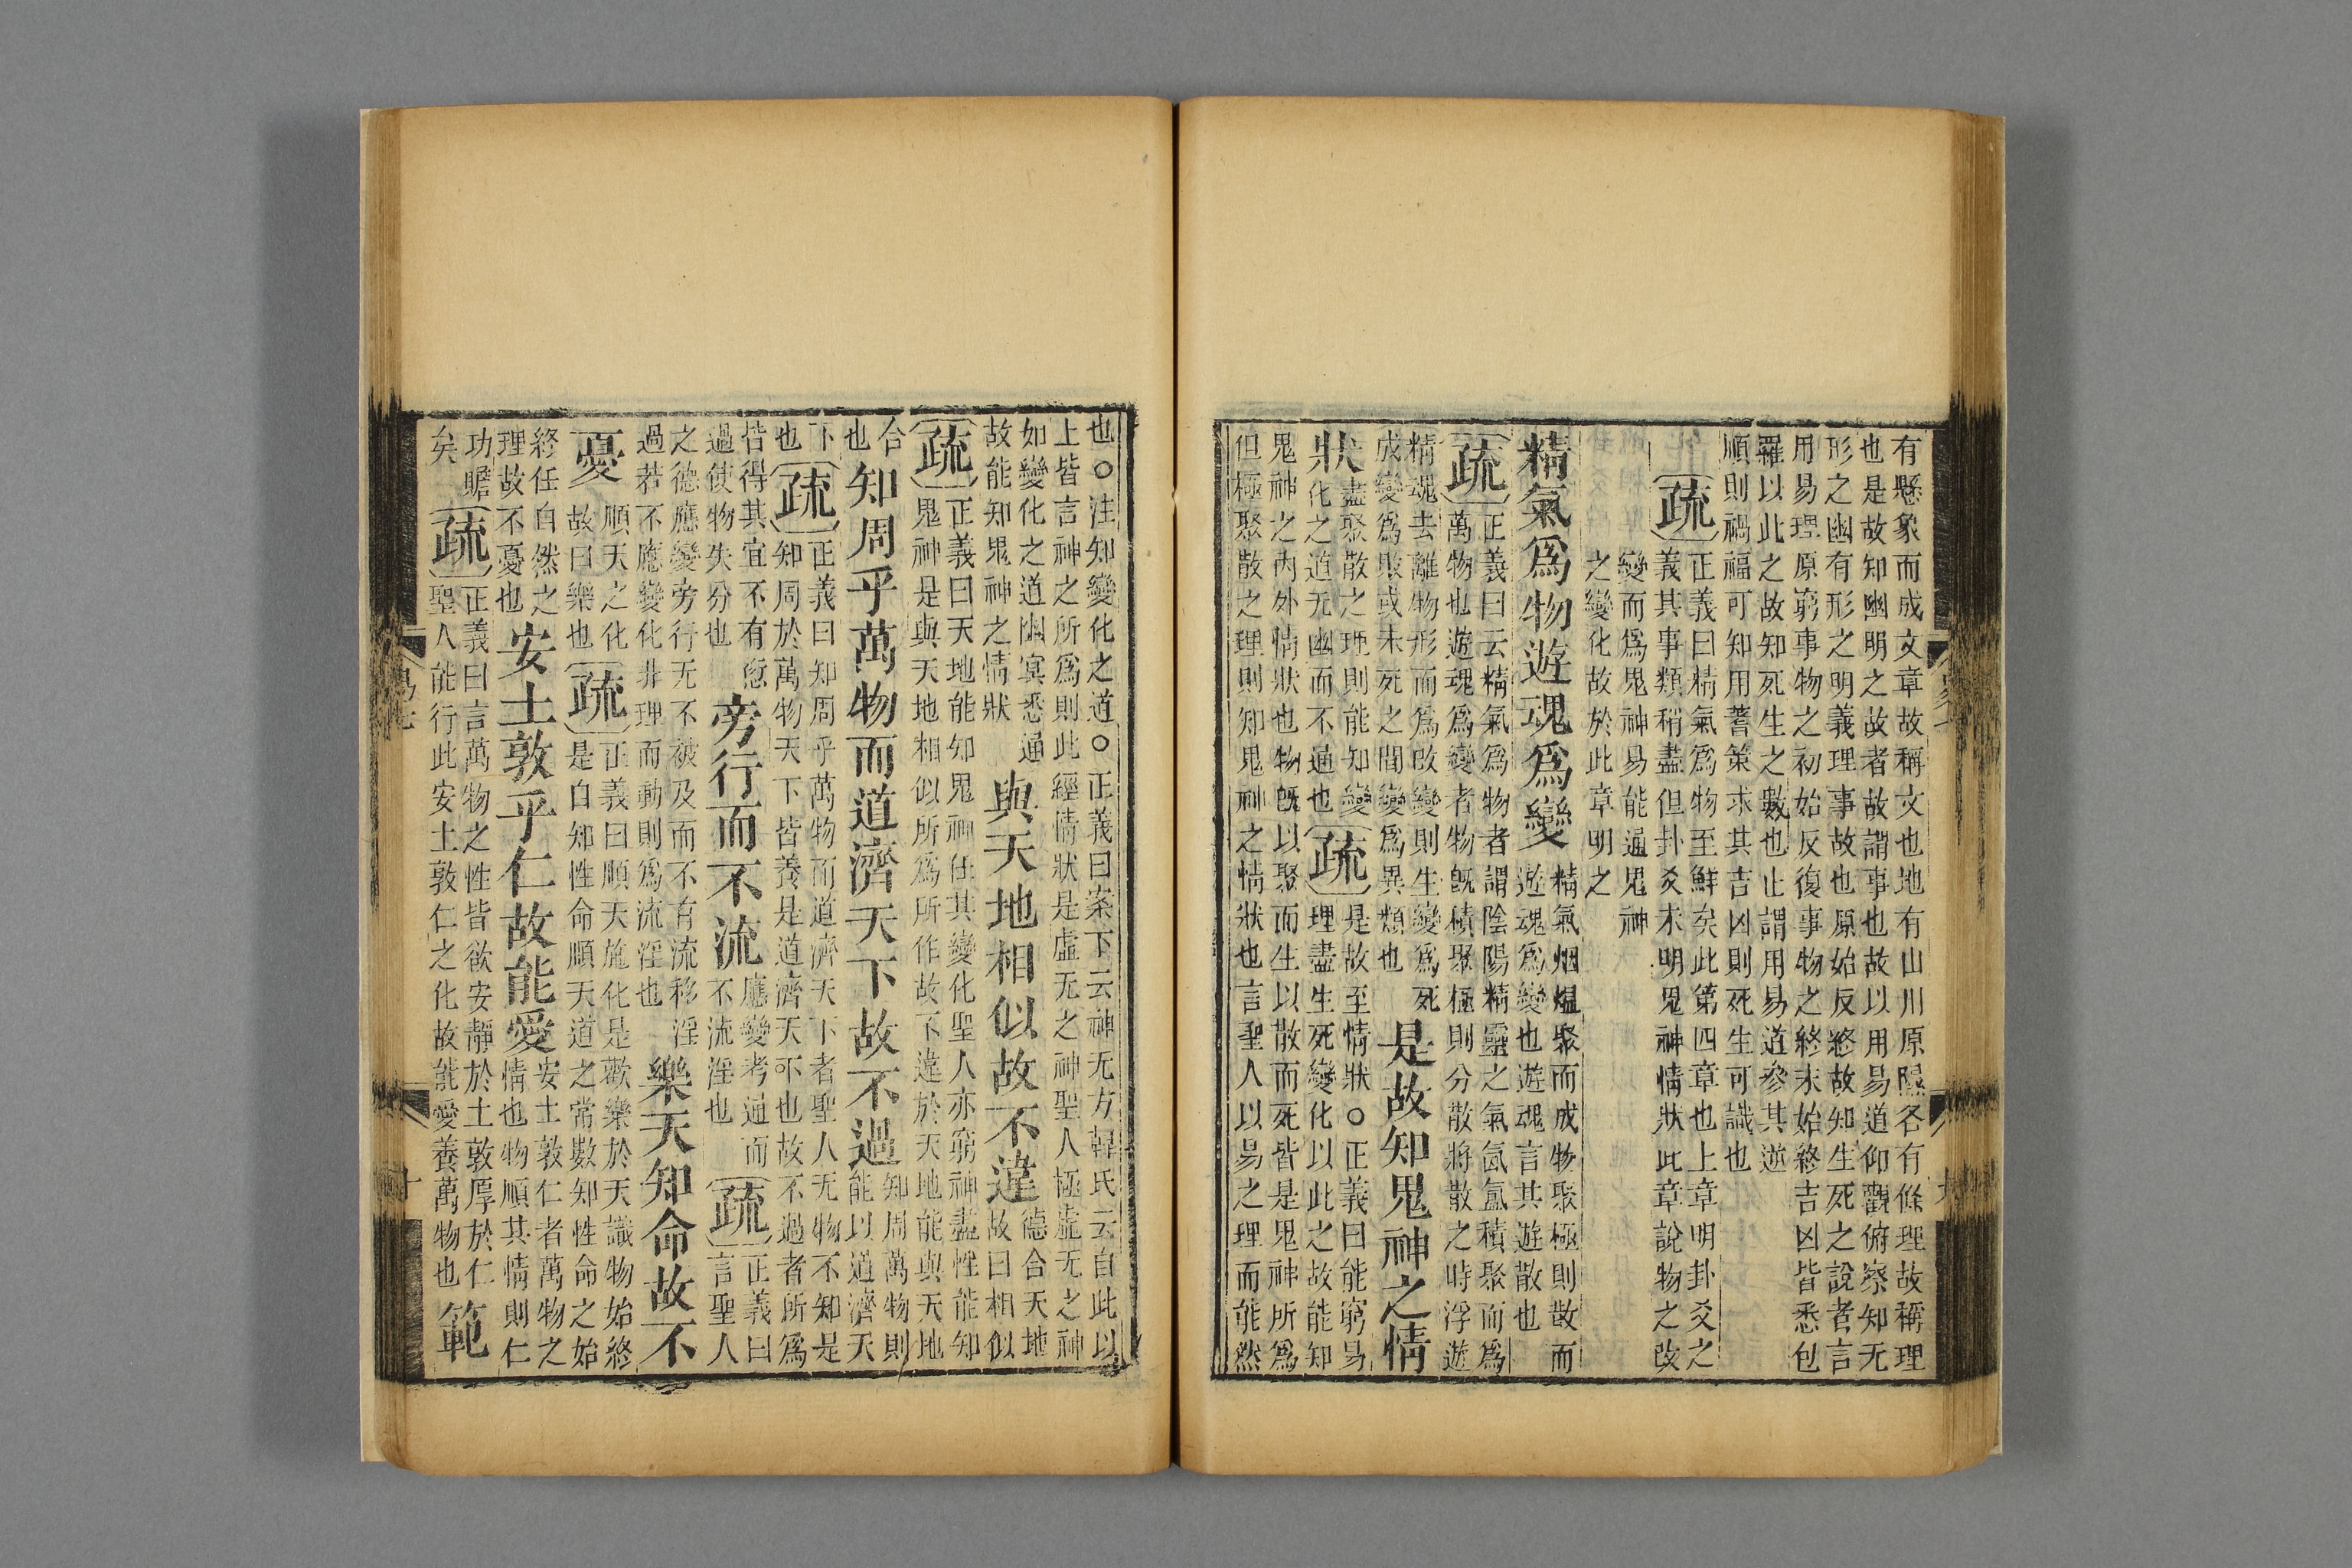 有懸象而成文章故稱文也地有山川原隰各有條理故稱理
也是故知幽明之故者故謂事也故以用易道仰觀俯察知无
形之幽有形之明義理事故也原始反終故知生死之說者言
用易理原窮事物之初始反復事物之終末始終吉凶皆悉包
羅以此之故知死生之數也止謂用易道參其逆
順則禍福可知用蓍策求其吉凶則死生可識也
疏
正義曰精氣爲物至鮮矣此第四章也上章明卦爻之
義其事類稍盡但卦爻未明鬼神情狀此章說物之改
變而爲鬼神易能通鬼神
之變化故於此章明之
精氣爲物遊魂爲變
精氣烟熅聚而成物聚極則散而
遊魂爲變也遊魂言其遊散也
疏
正義曰云精氣爲物者謂陰陽精靈之氣氤氳積聚而爲
萬物也遊魂爲變者物旣積聚極則分散將散之時浮遊
精魂去離物形而爲改變則生變爲死
成變爲敗或未死之間變爲異類也
是故知鬼神之情
狀
盡聚散之理則能知變
化之道无幽而不通也
疏
是故至情狀○正義曰能窮易
理盡生死變化以此之故能知
鬼神之內外情狀也物旣以聚而生以散而死皆是鬼神所爲
但極聚散之理則知鬼神之情狀也言聖人以易之理而能然
也○注知變化之道○正義曰案下云神无方韓氏云自此以
上皆言神之所爲則此經情狀是虛无之神聖人極虛无之神
如變化之道幽冥悉通
故能知鬼神之情狀
與天地相似故不違
德合天地
故曰相似
疏
正義曰天地能知鬼神任其變化聖人亦窮神盡性能知
鬼神是與天地相似所爲所作故不違於天地能與天地
合
也
知周乎萬物而道濟天下故不過
知周萬物則
能以道濟天
下
也
疏
正義曰知周乎萬物而道濟天下者聖人无物不知是
知周於萬物天下皆養是道濟天下也故不過者所爲
皆得其宜不有愆
過使物失分也
旁行而不流
應變考通而
不流淫也
疏
正義曰
言聖人
之德應變旁行无不被及而不有流移淫
過若不應變化非理而動則爲流淫也
樂天知命故不
憂
順天之化
故曰樂也
疏
正義曰順天施化是歡樂於天識物始終
是自知性命順天道之常數知性命之始
終任自然之
理故不憂也
安土敦乎仁故能愛
安土敦仁者萬物之
情也物順其情則仁
功贍
矣
疏
正義曰言萬物之性皆欲安靜於土敦厚於仁
聖人能行此安土敦仁之化故能愛養萬物也
範
易七
十